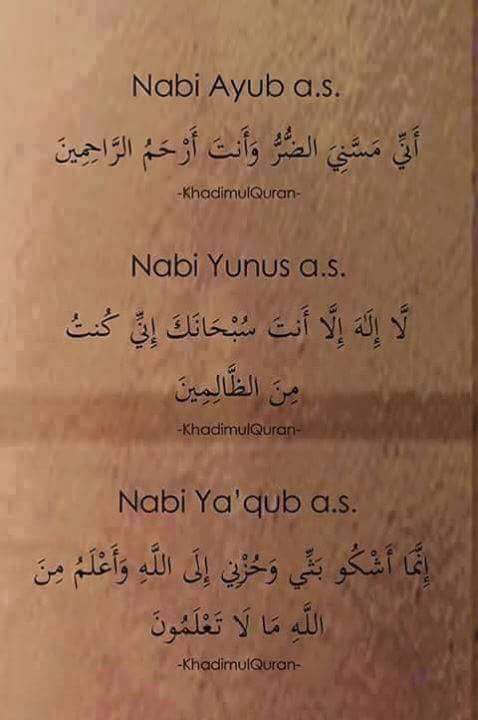 Nabi Ayub a.s.
أَنِّي مَسَّنِيَ الضُّرُّ وَأَنتَ أَرْحَمُ الرَّاحِمِينَ
-KhadimulQuran-
Nabi Yunus a.s.
لَّا إِلَٰهَ إِلَّا أَنتَ سُبْحَانَكَ إِنِّي كُنتُ
مِنَ الظَّالِمِينَ
-KhadimulQuran-
Nabi Ya'qub a.s.
إِنَّمَا أَشْكُو بَثِّي وَحُزْنِي إِلَى اللَّهِ وَأَعْلَمُ مِنَ
اللَّهِ مَا لَا تَعْلَمُونَ
-KhadimulQuran-